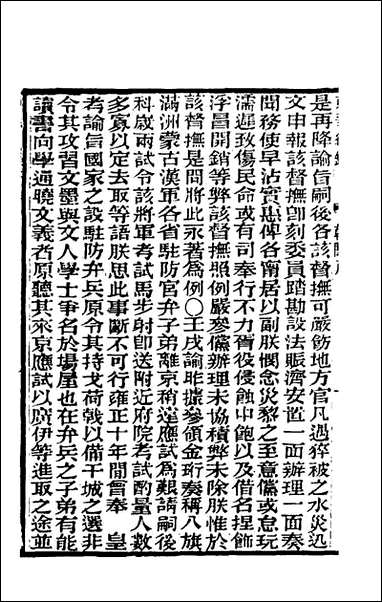 是再降諭旨嗣後各該督撫可嚴飭地方官凡遇猝被之水災迅
文申報該督撫卽刻委員踏勘設法賬濟安置一面辦理一面奏
聞務使早沾實惠俾各甯居以副朕憫念災黎之至意儻或怠玩
濡遲致傷民命或有司奉行不力胥役侵蝕中飽以及借名捏飾
浮冒開銷等弊該督撫照例嚴參儻辦理未協積弊未除朕惟於
該督撫是問將此永著爲例〇壬戌諭昨據參領金珩奏稱八旗
滿洲蒙古漢軍各省駐防官弁子弟離京稍遠應試爲艱請嗣後
科歲兩試令該將軍考試馬步射卽送附近府院考試酌量人數
多寡以定去取等語朕思此事斷不可行雍正十年閒曾奉　皇
考諭旨國家之設駐防弁兵原令其持戈荷戟以備干城之選非
令其攻習文墨與文人學士爭名於場屋也在弁兵之子弟有能
讀書向學通曉文義者原聽其來京應試以廣伊等進取之途並